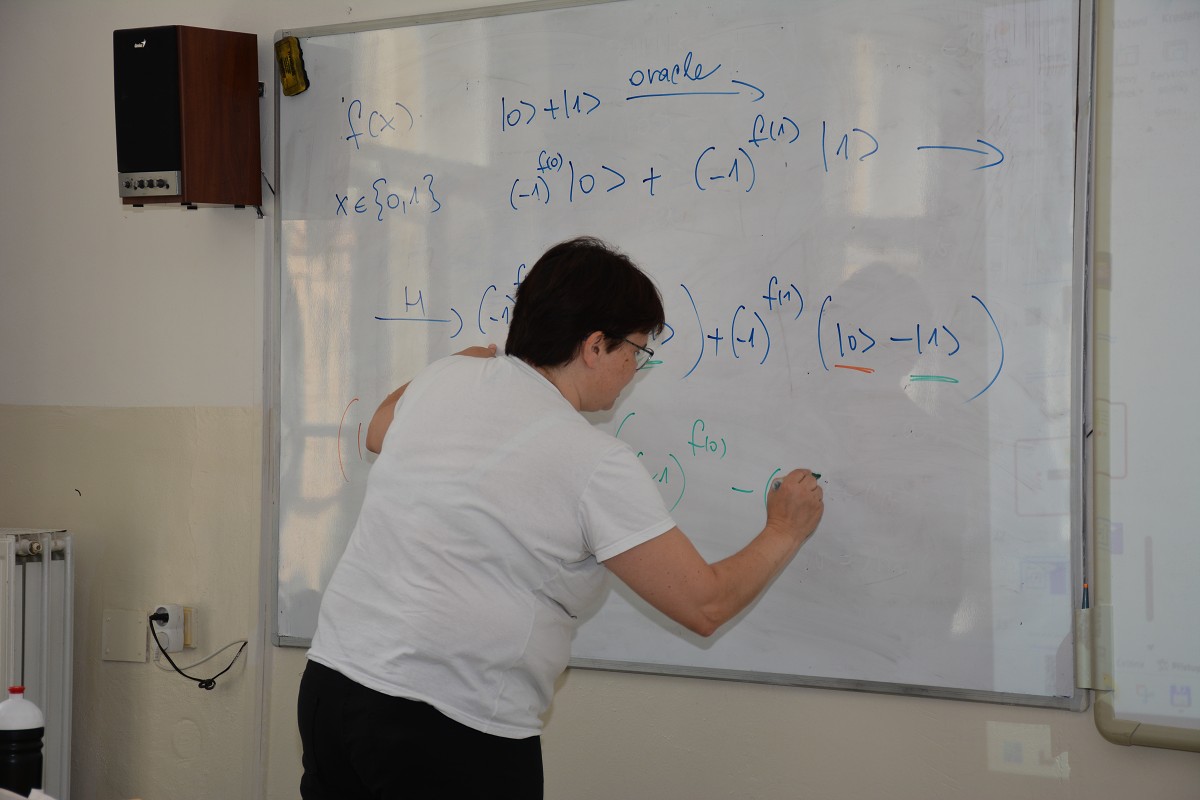 f(x) |0> + |1> oracle →
x ∈ {0,1} (-1)^f(0) |0> + (-1)^f(1) |1> →
H → (-1)^f ) + (-1)^f(1) ( |0> - |1> )
( ( (-1)^f(0) - (